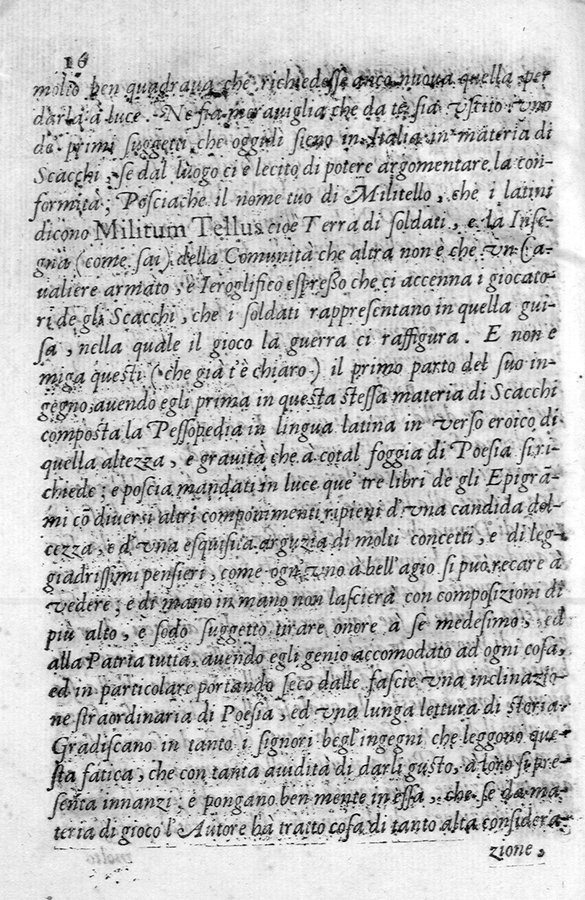 16
molto ben quadraua che richiedesse anco nuoua quella per
darla à luce. Ne sia marauiglia che da te sia vscito vno
de primi suggetti che oggidi sieno in Italia in materia di
Scacchi; se dal luogo ci è lecito di potere argomentare la con-
formità; Posciache il nome tuo di Militello, che i latini
dicono Militum Tellus cioè Terra di soldati, e la Inse-
gna (come sai) della Comunità che altra non è che vn Ca-
ualiere armato, è Ieroglifico espresso che ci accenna i giocato-
ri de gli Scacchi, che i soldati rappresentano in quella gui-
sa, nella quale il gioco la guerra ci raffigura. E non è
miga questi (che già t'è chiaro) il primo parto del suo in-
gegno, auendo egli prima in questa stessa materia di Scacchi
composta la Pessopedia in lingua latina in verso eroico di
quella altezza, e grauità che à cotal foggia di Poesia si ri-
chiede; e poscia mandati in luce que' tre libri de gli Epigrã-
mi cõ diuersi altri componimenti ripieni d'vna candida dol-
cezza, e d'vna esquisita arguzia di molti concetti, e di leg-
giadrissimi pensieri, come ogn' vno à bell'agio si può recare à
vedere; e di mano in mano non lascierà con composizioni di
più alto, e sodo suggetto tirare onore à se medesimo, ed
alla Patria tutta, auendo egli genio accomodato ad ogni cosa,
ed in particolare portando seco dalle fascie vna inclinazio-
ne straordinaria di Poesia, ed vna lunga lettura di storia.
Gradiscano in tanto i signori begl'ingegni che leggono que-
sta fatica, che con tanta auidità di darli gusto, à loro si pre-
senta innanzi; e pongano ben mente in essa, che se da ma-
teria di gioco l'Autore hà tratto cosa di tanto alta considera-
zione,